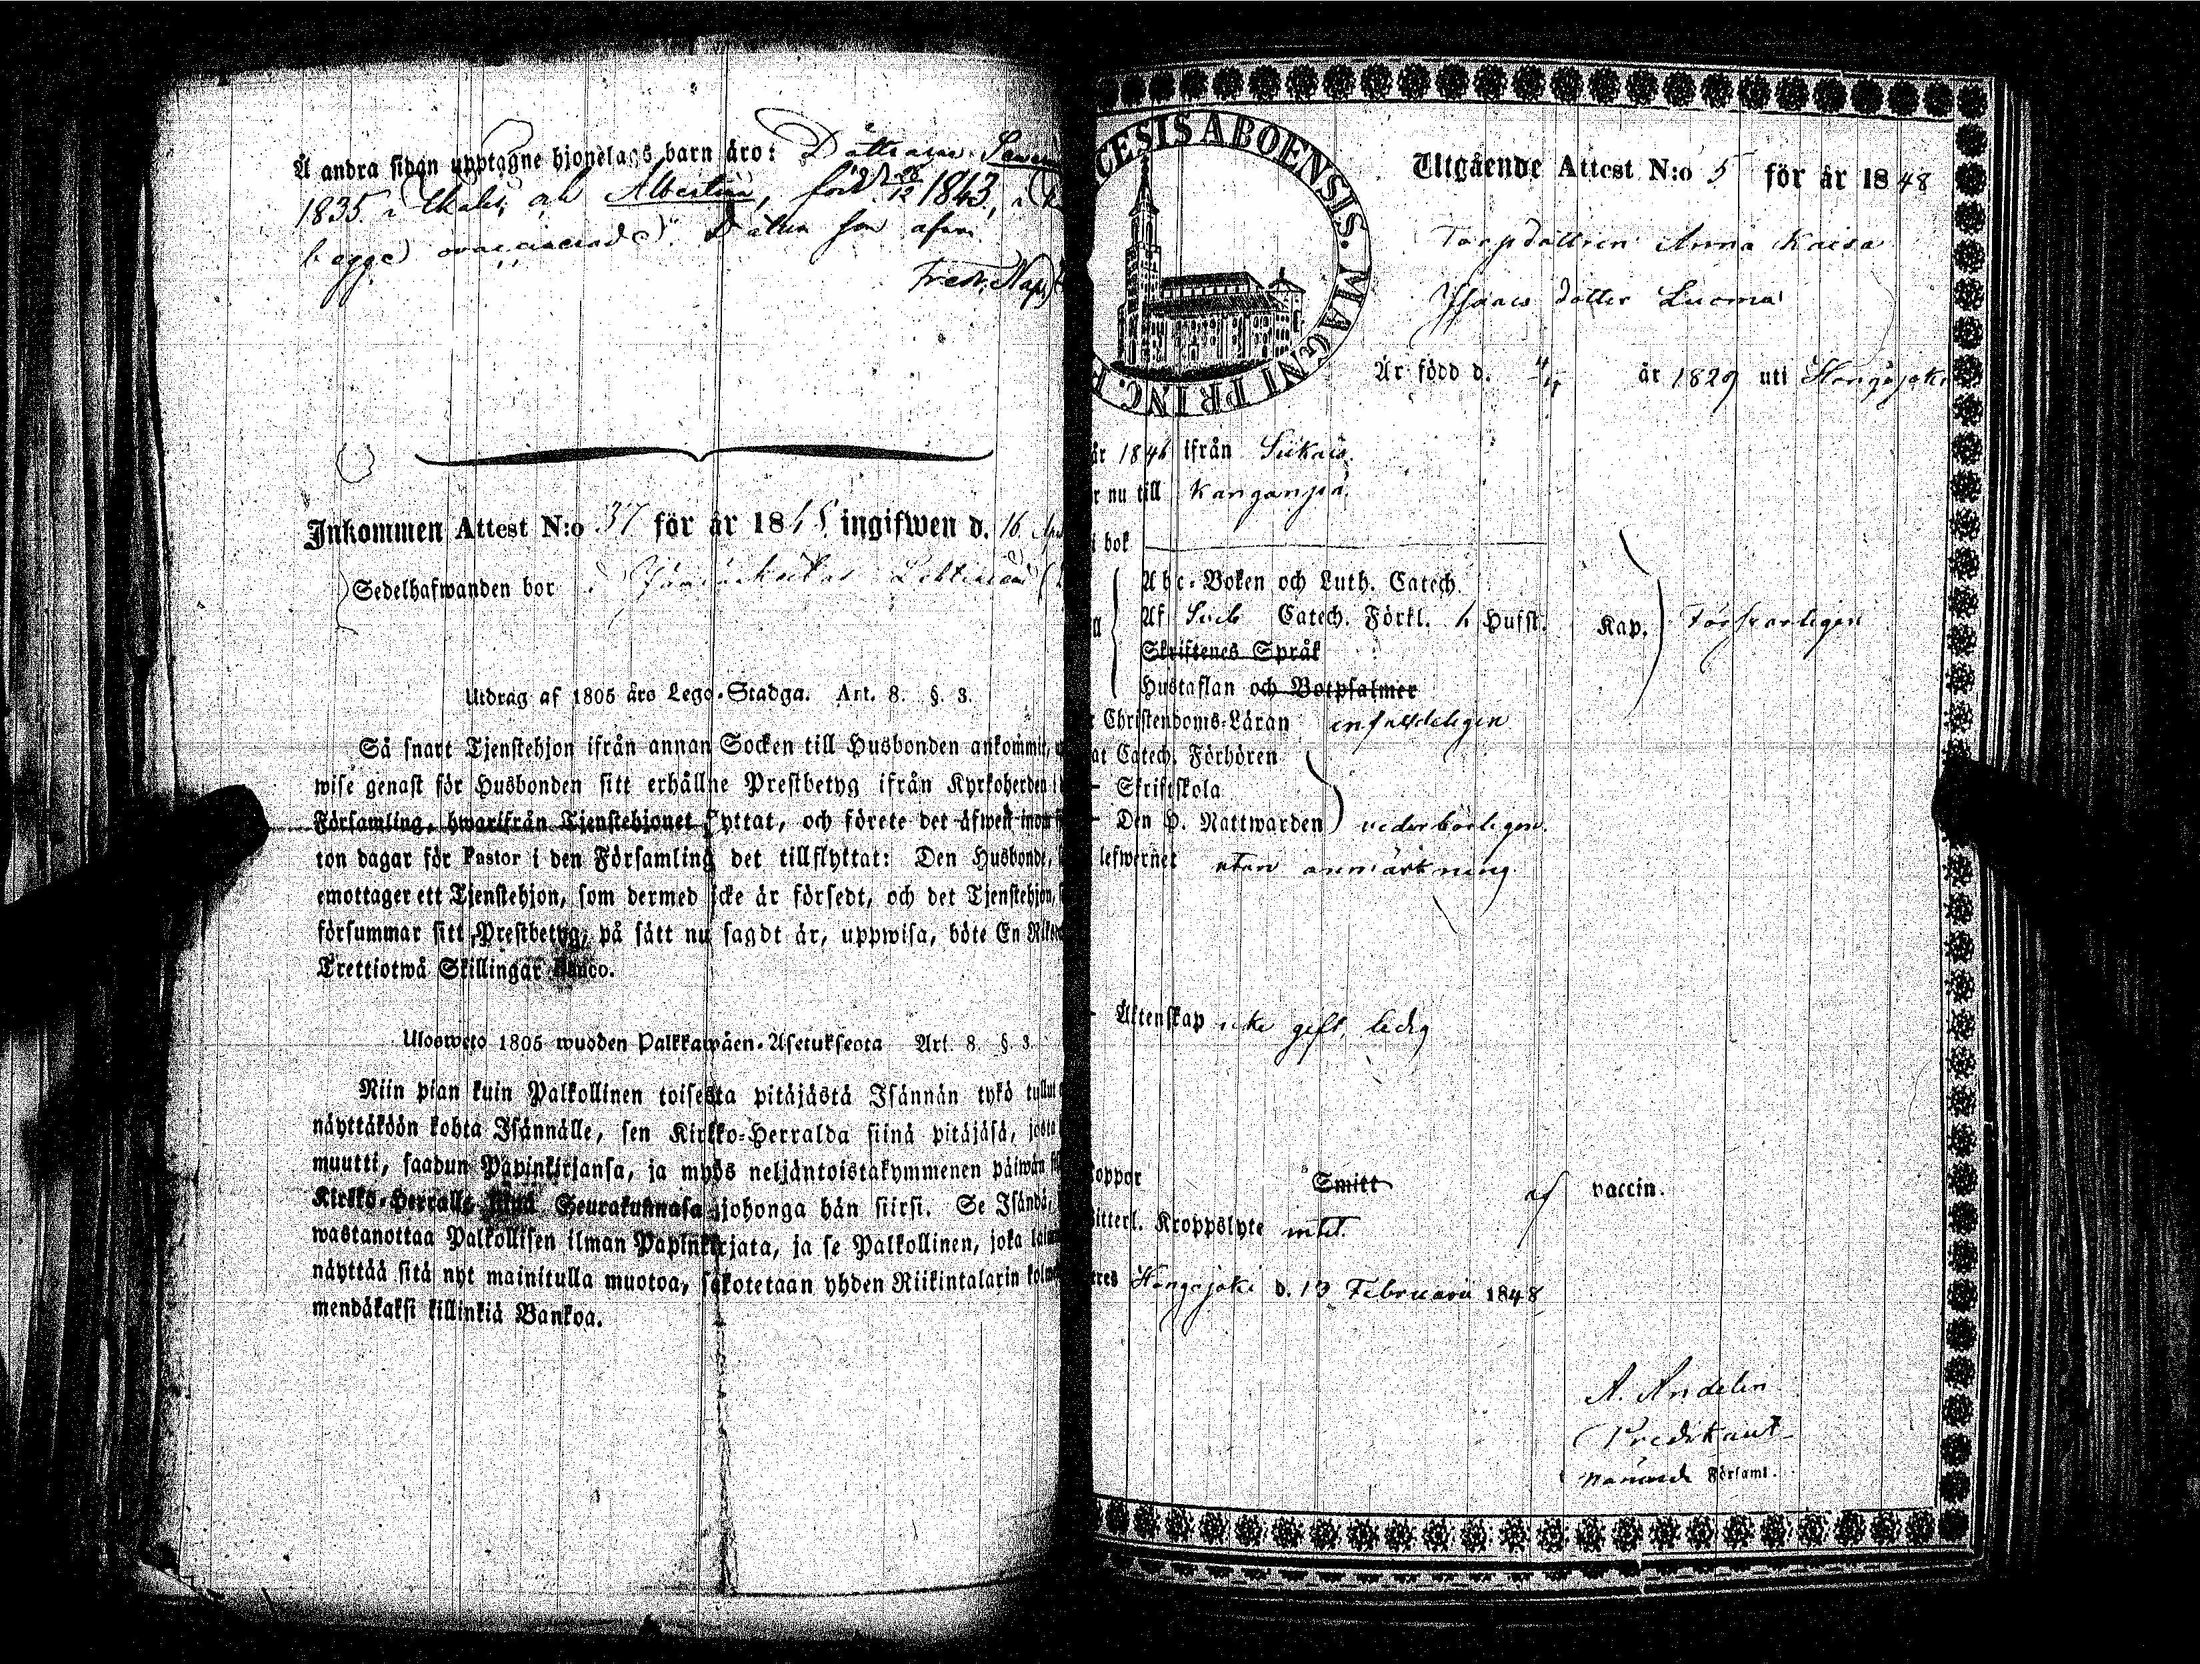 Å andra sidan upptagne hjonelags barn äro: Döttrarne
1835 i och Albertina, född 28/12 1843, i
begge ovaccinerade. Datum som ofvan
Fredr.
Inkommen Attest N:o 37 för år 1848 ingifwen d. 16
Sedelhafwanden bor
Utdrag af 1805 års Lego-Stadga. Art. 8. §. 3.
Så snart Tjenstehjon ifrån annan Socken till Husbonden ankommit,
wise genast för Husbonden sitt erhållne Prestbetyg ifrån Kyrkoherden i
Församling, hwarifrån Tjenstehjonet flyttat, och förete det äfwen inom
ton dagar för Pastor i den Församling det tillflyttat: Den Husbonde,
emottager ett Tjenstehjon, som dermed icke är försedt, och det Tjenstehjon,
försummar sitt Prestbetyg, på sätt nu sagdt är, uppwisa, böte En
Trettiotwå Skillingar Banco.
Ulosweto 1805 wuoden Palkkawäen-Asetuksesta Art. 8. §. 3.
Niin pian kuin Palkollinen toisesta pitäjästä Isännän tykö tullut
näyttäköön kohta Isännälle, sen Kirkko-Herralda siinä pitäjäsä, josta
muutti, saadun Papinkirjansa, ja myös neljäntoistakymmenen päiwän
Kirkko-Herralle siinä Seurakunnasa johonga hän siirsi. Se Isändä,
wastanottaa Palkollisen ilman Papinkirjata, ja se Palkollinen, joka
näyttää sitä nyt mainitulla muotoa, sakotetaan yhden Riikintalarin
mendäkaksi killinkiä Bankoa.
CESIS ABOENSIS. MAGNI PRINC. F
Utgående Attest N:o 5 för år 1848
Torpdottren Anna Kaisa
Isaacs dotter Luoma
Är född d. år 1829 uti Hongojoki
år 1846 ifrån Siikais
nu till Kanganpää
i bok
Abc-Boken och Luth. Catech.
Af Sveb Catech. Förkl. Husfl. Kap. Försvarligen
Skriftenes Språk
Hustaflan och Botpsalmer
Christendoms-Läran enfaldeligen
Catech. Förhören
Skriftskola
Den H. Nattwarden vederbörligen.
lefwernet utan anmärkning
Äktenskap icke gift, ledig
koppor Smitt af vaccin.
Kroppslyte intet.
Hongojoki d. 13 Februarii 1848
A. Andelin
Predikant
Församl.